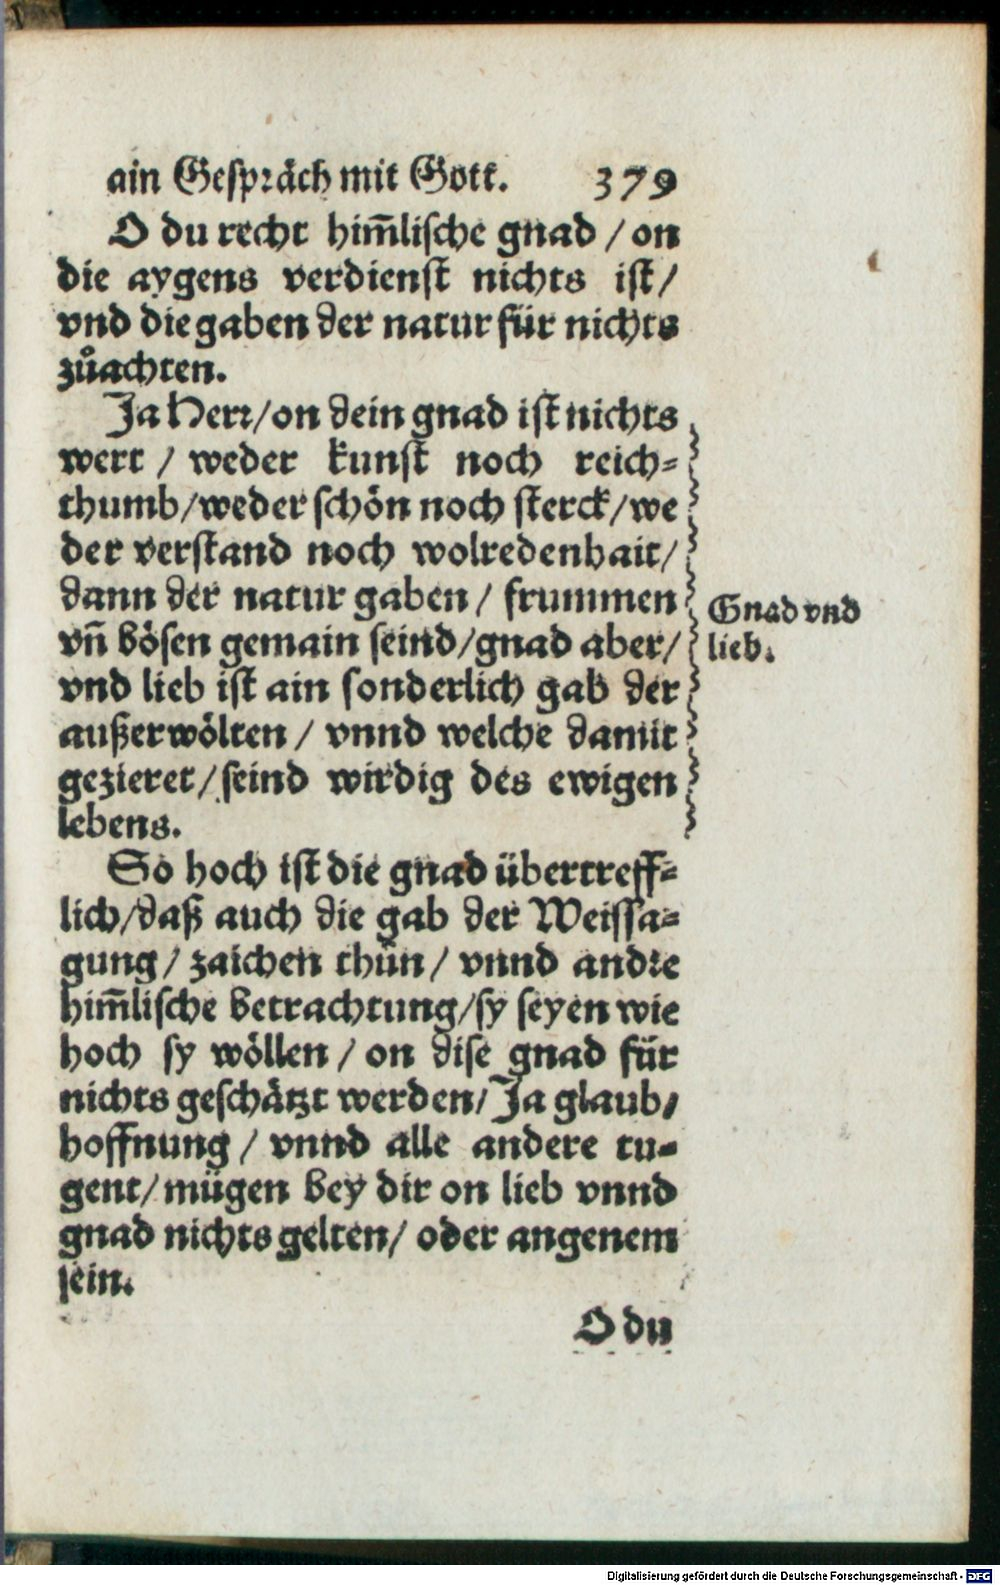 ain Gespräch mit Gott. 379
O du recht him̃lische gnad / on
die aygens verdienst nichts ist /
vnd die gaben der natur für nichts
zůachten.
Ja Herr / on dein gnad ist nichts
wert / weder kunst noch reich-
thumb / weder schön noch sterck / we
der verstand noch wolredenhait /
dann der natur gaben / frummen
vñ bösen gemain seind / gnad aber /
vnd lieb ist ain sonderlich gab der
außerwölten / vnnd welche damit
gezieret / seind wirdig des ewigen
lebens.
Gnad vnd
lieb.
So hoch ist die gnad übertreff-
lich / daß auch die gab der Weissa-
gung / zaichen thůn / vnnd andre
him̃lische betrachtung / sy seyen wie
hoch sy wöllen / on dise gnad für
nichts geschätzt werden / Ja glaub /
hoffnung / vnnd alle andere tu-
gent / mügen bey dir on lieb vnnd
gnad nichts gelten / oder angenem
sein.
O du
Digitalisierung gefördert durch die Deutsche Forschungsgemeinschaft - DFG